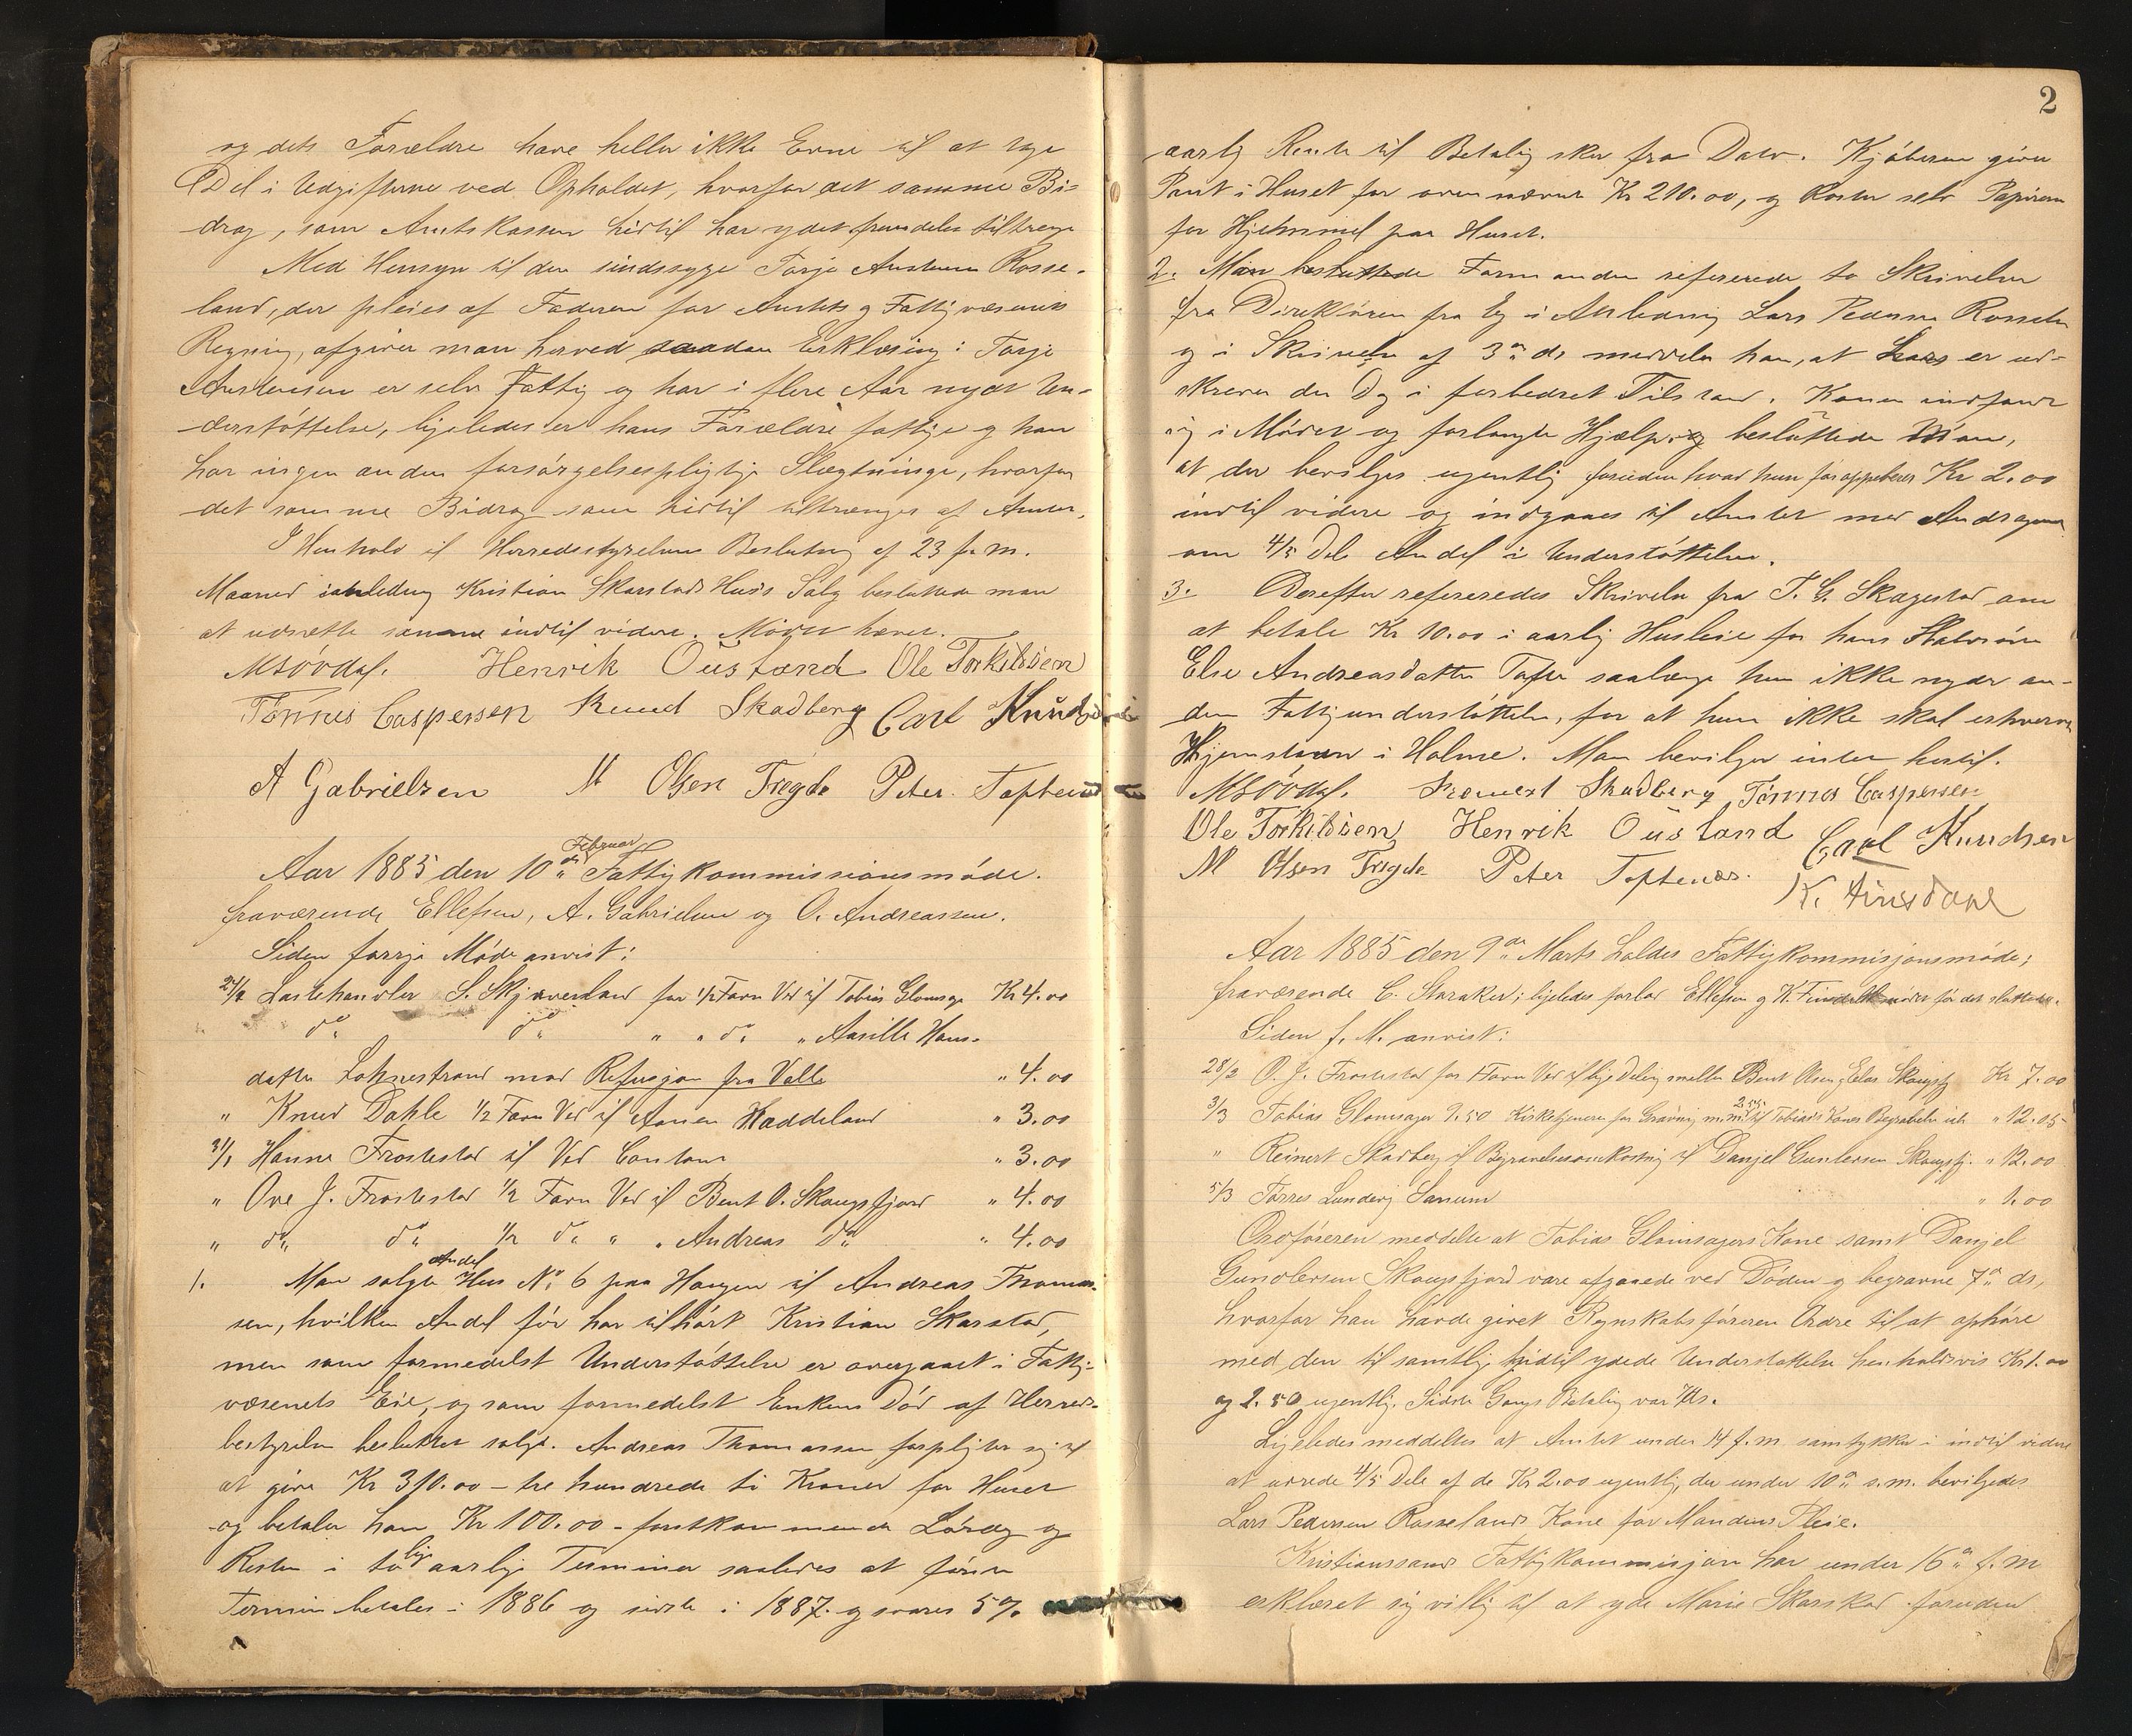 og dets Forældre have heller ikke Evne til at tage
Del i Udgifterne ved Opholdet, hvorfor det samme Bi-
drag, som Amtskassen hidtil har ydet fremdeles tiltrenges
Med Hensyn til den sindssyge Torje Austensen Rosse-
land, der pleies af Faderen for Amtets og Fattigvæsenets
Regning, afgiver man herved saadan Erklæring: Torje
Austensen er selv Fattig og har i flere Aar nydt Un-
derstøttelse, ligeledes er hans Forældre fattige og han
har ingen anden forsørgelsespligtige Slægtninge, hvorfor
det samme Bidrag som hidtil tiltrænges af Amtet.
I Henhold til Herredsstyrelsens Beslutning af 23 f. M.
Maaned i anledning Kristian Skarstads Huus Salg besluttede man
at udsætte samme indtil videre. Mødet hævet.
Henrik Ousland Ole Torkildsen
Tønnes Caspersen Skadberg Carl Knudsen
A Gabrielsen M Olsen Tregde Peter Toftenes
Aar 1885 den 10de Februar Fattigkommissionsmøde.
fraværende Ellefsen, A. Gabrielsen og O. Andreassen.
Siden forrige Møde anvist:
Lastehandler S. Skjæveland for 1/2 Favn Ved til Tobias Glomsage Kr 4.00
do do " " do " Aasille Hans-
datter Lohnestrand mod Refusjon fra Valle " 4.00
" Knud Dahle 1/2 Favn Ved til Anen Haddeland " 3.00
31/1 Hanne Frostestad til Ved Contant " 3.00
" Ove J. Frostestad 1/2 Favn Ved til Bent O. Skougsfjord " 4.00
" do do 1/2 do " " Andreas do " 4.00
1. Man solgte Andel Hus No 6 paa Haugen til Andreas Thomas-
sen, hvilken Andel før har tilhørt Kristian Skarstad,
men som formedelst Understøttelse er overgaaet i Fattig-
væsenets Eie, og som formedelst Enkens Død af Herreds-
bestyrelsen besluttet solgt. Andreas Thomassen forpligter sig til
at give Kr 310.00 – tre hundrede ti Kroner for Huset
og betaler han Kr 100.00 – førstkommende Lørdag og
Resten i to lige aarlige Terminer saaledes at første
Termin betales i 1886 og sidste i 1887. og svares 5 %
2
aarlig Rente til Betaling sker fra Dato. Kjøberen giver
Pant i Huset for oven nævnte Kr 210.00, og koster selv Papirerne
for Hjemmel paa Huset.
2. Man besluttede Formanden refererede to Skrivelser
fra Direktøren fra Eg i Anledning Lars Pedersen Rosseland
og i Skrivelse af 3de ds meddeler han, at Lars er ud-
skreven den Dag i forbedret Tilstand. Konen indfandt
sig i Mødet og forlangte Hjælp, og besluttede Man,
at der bevilges ugentlig foruden hvad hun før oppebærer Kr 2.00
indtil videre og indgaaes til Amtet med Andragende
om 4/5 Dele Andel i Understøttelsen.
3. Derefter refereredes Skrivelse fra T. G. Skagestad om
at betale Kr 10.00 i aarlig Husleie for hans
Else Andreasdatter Tofte saalænge hun ikke nyder an-
den Fattigunderstøttelse, for at hun ikke skal erhverve
Hjemstavn i Halme. Man bevilger intet hertil.
Skadberg Tønnes Caspersen
Ole Torkildsen Henrik Ousland Carl Knudsen
M Olsen Tregde Peter Toftenes. K. Finsdahl
Aar 1885 den 9de Marts holdes Fattigkommisjonsmøde;
fraværende C. Staraker; ligeledes forlod Ellefsen og K. Finsdahl mødet før det sluttede.
Siden f. M. anvist:
28/2 O. J. Frostestad for 1 Favn Ved til lige Deling mellem Bent Olsen og Elias Skougsfj. Kr 7.00
3/3 Tobias Glomsager 9.50 Kirketjeneren for Gravning m.m. 2.55 til Tobias's Kones Begravelse " 12.05
" Reinert Skadberg til Begravelsesomkostning til Danjel Gundersen Skougsfj. " 12.00
5/3 Tørres Lundevig Sanum " 1.00
Ordføreren meddelte at Tobias Glomsagers Kone samt Danjel
Gundersen Skougsfjord vare afgaaede ved Døden og begravne 7de ds,
hvorfor han havde givet Regnskabsføreren Ordre til at ophøre
med den til samtlige hidtil ydede Understøttelse henholdsvis Kr 1.00
og 2.50 ugentlig. Sidste Gangs Betaling var
Ligeledes meddeltes at Amtet under 14 f. m. samtykker i indtil videre
at udrede 4/5 Dele af de Kr 2.00 ugentlig, der under 10de s. m. bevilgedes
Lars Pedersen Rosselands Kone for Mandens Pleie.
Kristianssands Fattigkommisjon har under 16de f. M
erklæret sig villig til at yde Marie Skarstad foruden